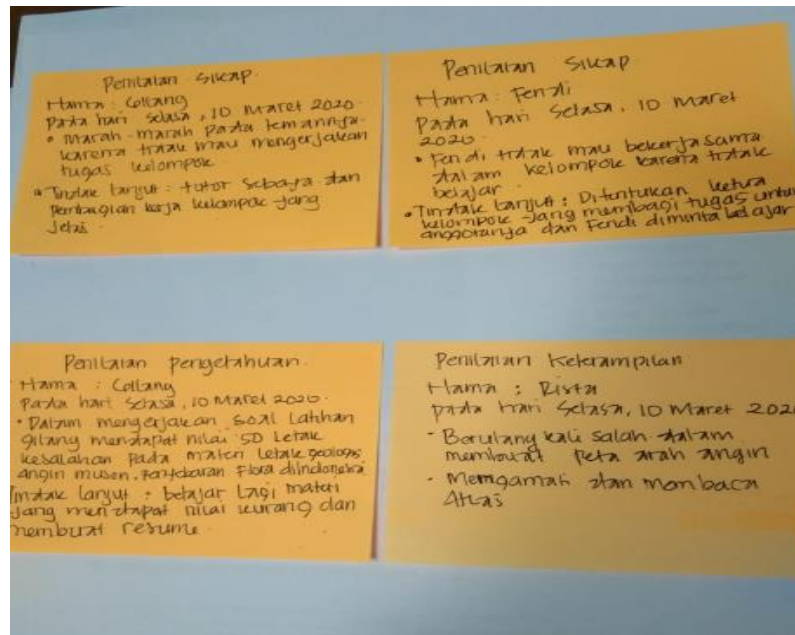 Penilaian Sikap.
Nama : Gilang
Pada hari Selasa, 10 Maret 2020.
• Marah-marah pada temannya karena tidak mau mengerjakan tugas kelompok.
• Tindak lanjut : tutor sebaya dan pembagian kerja kelompok yang jelas.
Penilaian Sikap
Nama : Fendi
Pada hari Selasa, 10 Maret
2020.
• Fendi tidak mau bekerja sama
dalam kelompok karena tidak
belajar.
• Tindak lanjut : Ditentukan ketua
kelompok yang membagi tugas untuk
anggotanya dan Fendi diminta belajar
Penilaian pengetahuan.
Nama : Gilang
Pada hari Selasa, 10 Maret 2020.
• Dalam mengerjakan soal latihan
gilang mendapat nilai 50 Letak
kesalahan pada materi letak geologis,
angin muson, Persebaran Flora diIndonesia
Tindak lanjut : belajar lagi materi
yang mendapat nilai kurang dan
membuat resume.
Penilaian Keterampilan
Nama : Rista
pada hari Selasa, 10 Maret 202
- Berulang kali salah dalam
membuat Peta arah angin
- Mengamati dan membaca
Atlas